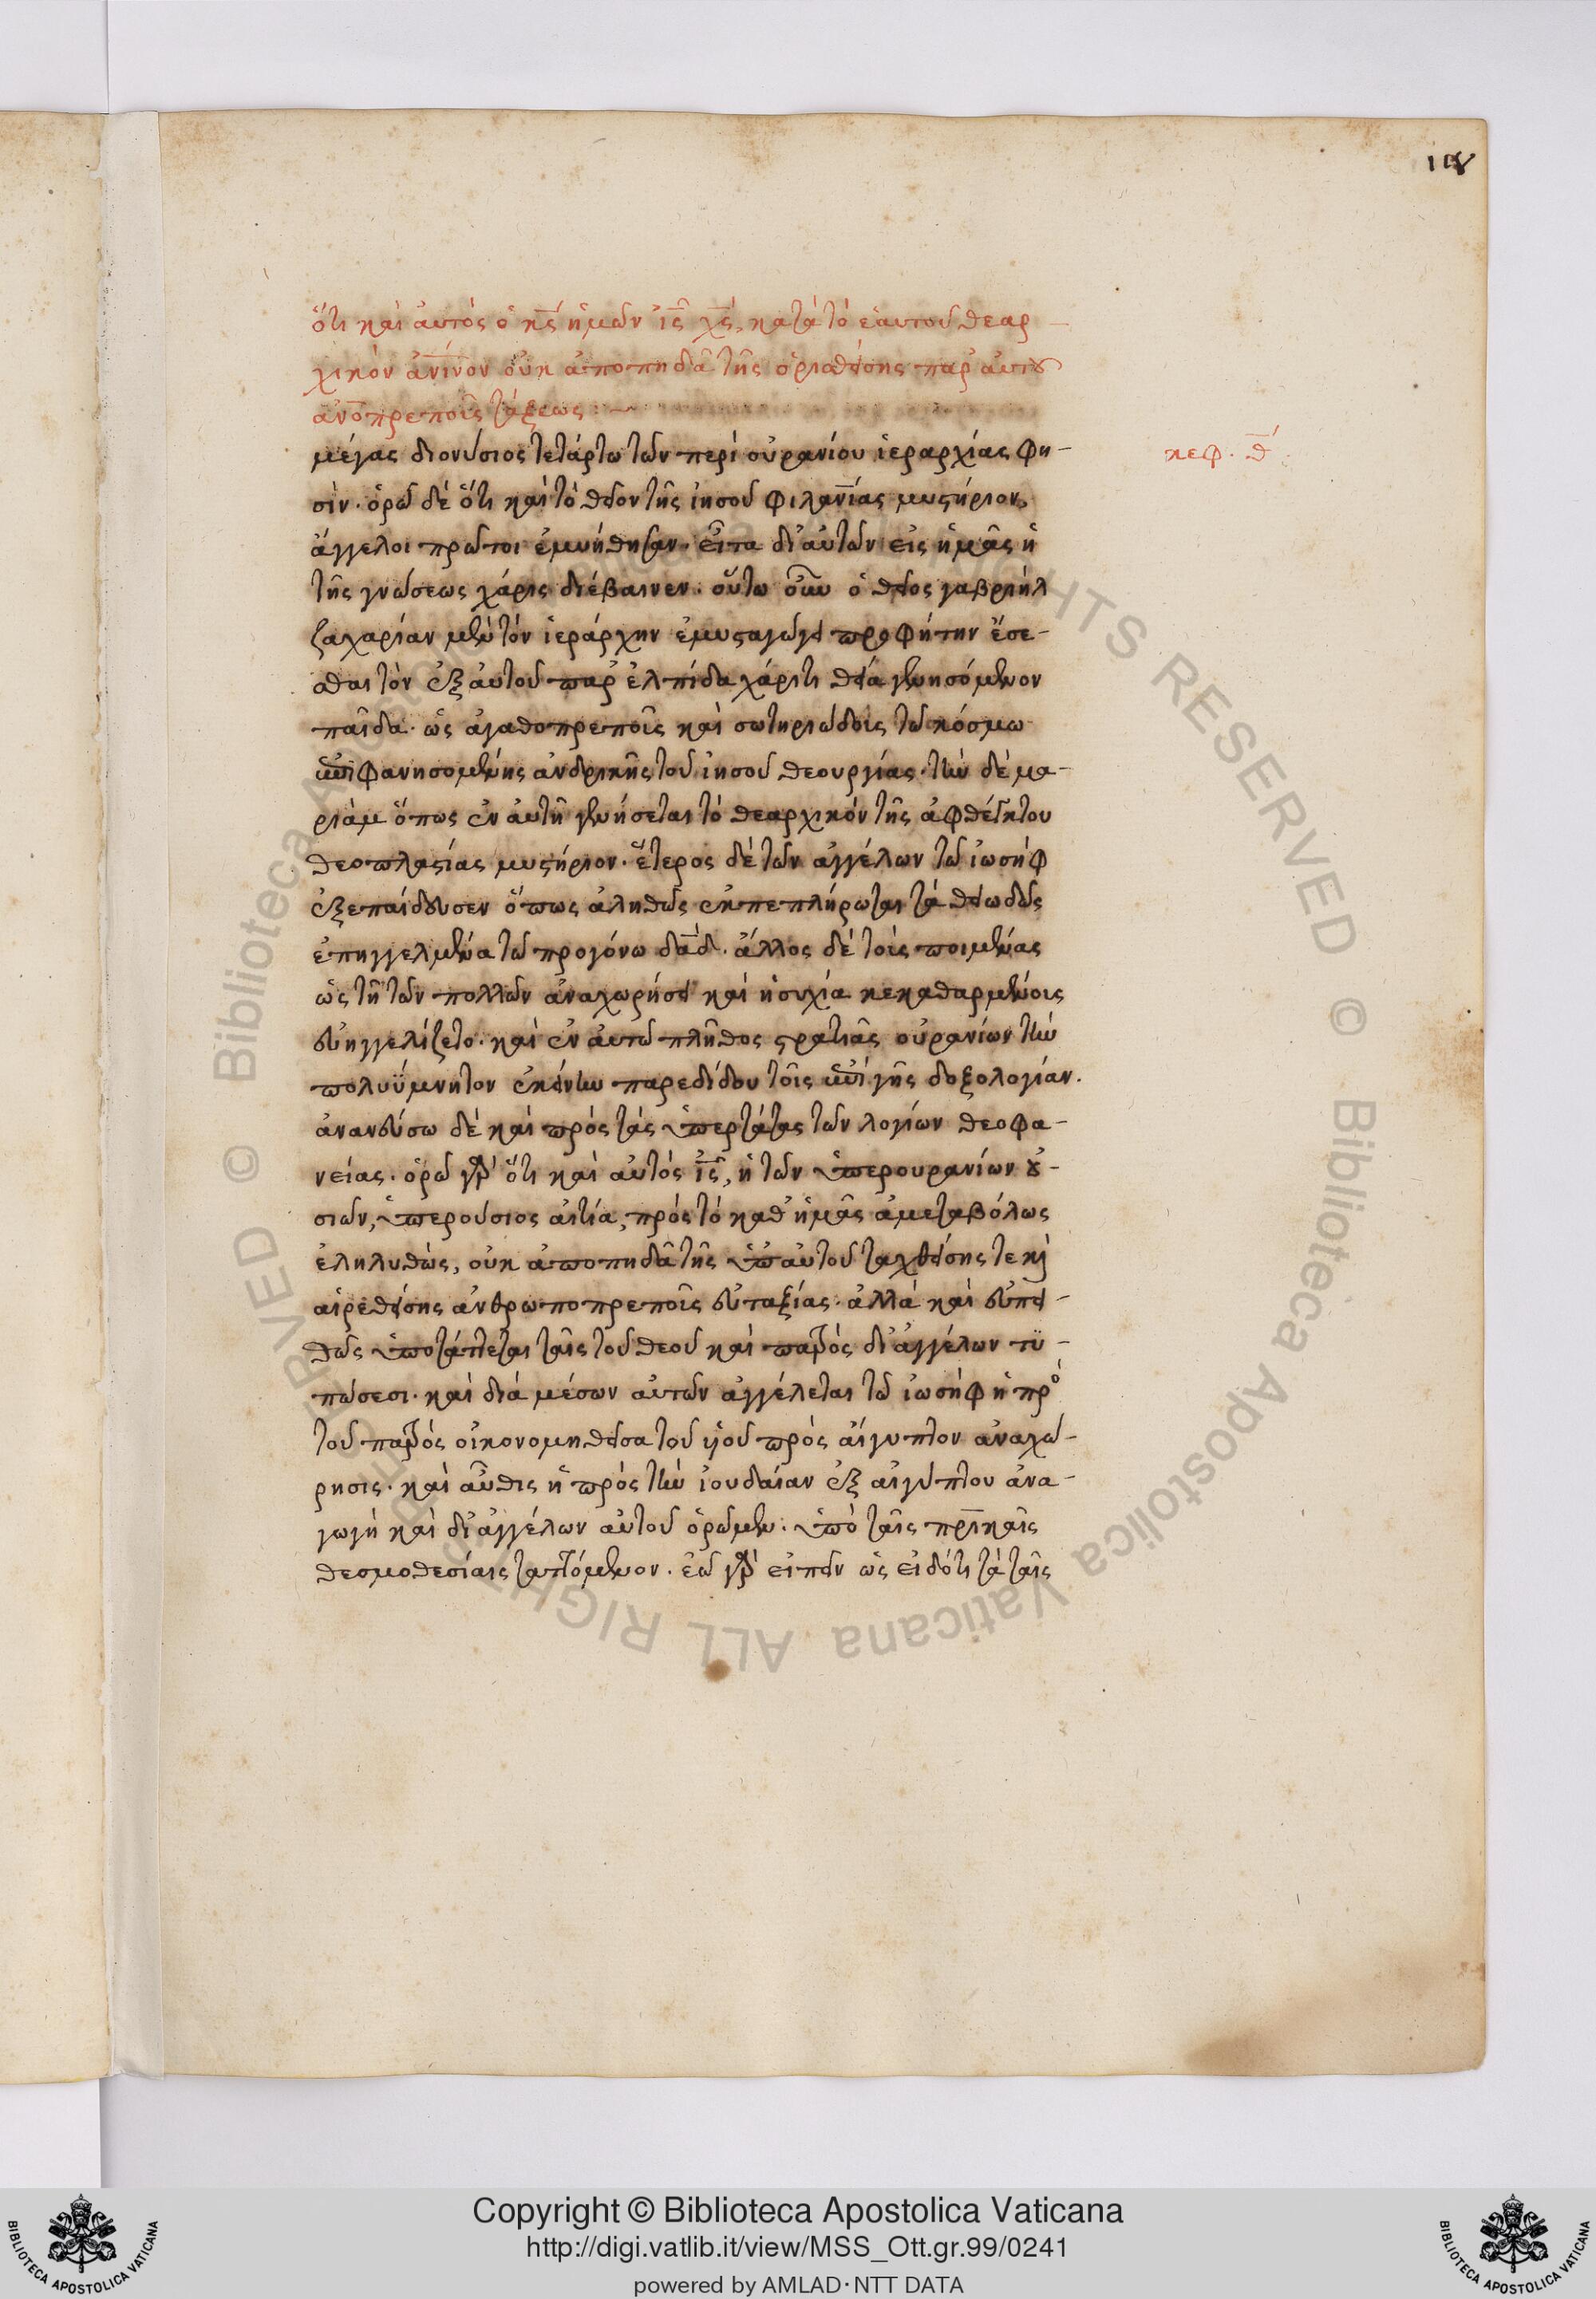 ὅτι καὶ αὐτὸς ὁ κ̅ς̅ ἡμῶν ι̅ς̅ χ̅ς̅, κατὰ τὸ ἑαυτοῦ θεαρ-
χικὸν ἀν̅ι̅ν̅ον οὐκ ἀποπηδᾶ τῆς ὁρισθείσης παρ' αὐτοῦ
ἀν̅οπρεποῦς τάξεως:~
μέγας διονύσιος τετάρτω τῶν περὶ οὐρανίου ἱεραρχίας φη-
κεφ. θ̅
σίν. ὁρῶ δὲ ὅτι καὶ τὸ θεῖον τῆς ἰησοῦ φιλαν̅ίας μυστήριον,
ἄγγελοι πρῶτοι ἐμυήθησαν. εἶτα δι' αὐτῶν εἰς ἡμᾶς ἡ
τῆς γνώσεως χάρις διέβαινεν. οὕτω οὖν ὁ θεῖος γαβριὴλ
ζαχαρίαν μὲν τὸν ἱεράρχην ἐμυσταγώγει προφήτην ἔσε-
σθαι τὸν ἐξ αὐτοῦ παρ' ἐλπίδα χάριτι θεία γενησόμενον
παῖδα. ὡς ἀγαθοπρεποῦς καὶ σωτηριώδους τῶ κόσμω
ἐπιφανησομένης ἀνδρικῆς τοῦ ἰησοῦ θεουργίας. τὴν δὲ μα-
ριὰμ ὅπως ἐν αὐτῆ γενήσεται τὸ θεαρχικὸν τῆς ἀφθέγκτου
θεοπλαστίας μυστήριον. ἕτερος δὲ τῶν ἀγγέλων τῶ ἰωσὴφ
ἐξεπαίδευσεν ὅπως ἀληθῶς ἐκπεπλήρωται τὰ θειωδῶς
ἐπηγγελμένα τῶ προγόνω δα̅δ. ἄλλος δὲ τοῖς ποιμένας
ὡς τῆ τῶν πολλῶν ἀναχωρήσει καὶ ἡσυχία κεκαθαρμένοις
εὐηγγελίζετο. καὶ ἐν αὐτῶ πλῆθος στρατιᾶς οὐρανίων τὴν
πολυΰμνητον ἐκείνην παρεδίδου τοῖς ἐπὶ γῆς δοξολογίαν.
ἀνανεύσω δὲ καὶ πρὸς τὰς ὑπερτάτας τῶν λογίων θεοφα-
νείας. ὁρῶ γὰρ ὅτι καὶ αὐτὸς ι̅ς̅, ἡ τῶν ὑπερουρανίων οὐ-
σιῶν, ὑπερούσιος αἰτία, πρὸς τὸ καθ' ἡμᾶς ἀμεταβόλως
ἐληλυθὼς, οὐκ ἀποπηδᾶ τῆς ὑπ' αὐτοῦ ταχθείσης τε καὶ
αἱρεθείσης ἀνθρωποπρεποῦς εὐταξίας. ἀλλὰ καὶ εὐπει-
θῶς ὑποτάττεται ταῖς τοῦ θεοῦ καὶ πατρὸς δι' ἀγγέλων τυ-
πώσεσι. καὶ διὰ μέσων αὐτῶν ἀγγέλεται τῶ ἰωσὴφ ἡ πρὸ
τοῦ πατρὸς οἰκονομηθεῖσα τοῦ υἱοῦ πρὸς αἴγυπτον ἀναχώ-
ρησις. καὶ αὖθις ἡ πρὸς τὴν ἰουδαίαν ἐξ αἰγύπτου ἀνα-
γωγή καὶ δι' ἀγγέλων αὐτοῦ ὁρῶμεν. ὑπὸ ταῖς πρ̅ικαῖς
θεσμοθεσίαις ταττόμενον. ἐῶ γὰρ εἰπεῖν ὡς εἰδότι τὰ ταῖς
Copyright © Biblioteca Apostolica Vaticana
http://digi.vatlib.it/view/MSS_Ott.gr.99/0241
powered by AMLAD·NTT DATA
BIBLIOTECA APOSTOLICA VATICANA
BIBLIOTECA APOSTOLICA VATICANA